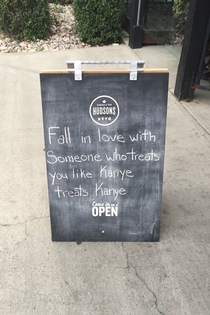 HUDSONS
Fall in love with
Someone who treats
you like Kanye
treats Kanye
Come on in
OPEN